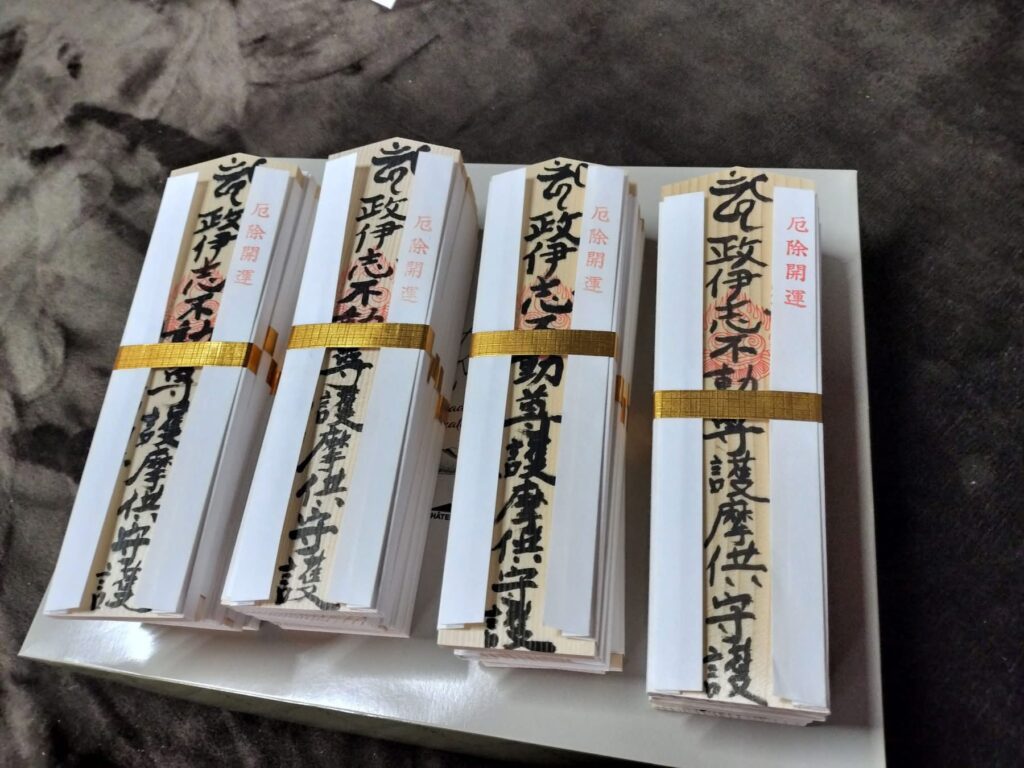 厄除開運
政伊志不動尊護摩供守護
厄除開運
政伊志不動尊護摩供守護
厄除開運
政伊志不動尊護摩供守護
厄除開運
政伊志不動尊護摩供守護